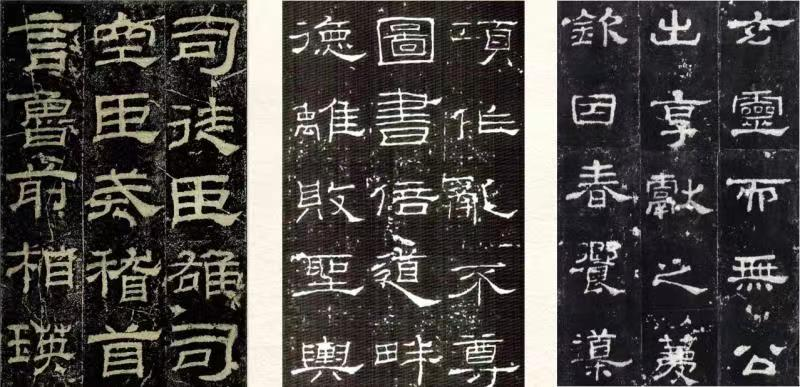 司徒臣雄司
空臣戒稽首
言魯前相瑛
項作亂不尊
圖書倍道畔
德離敗聖輿
玄靈而無公
出享獻之薦
欽因春饗導